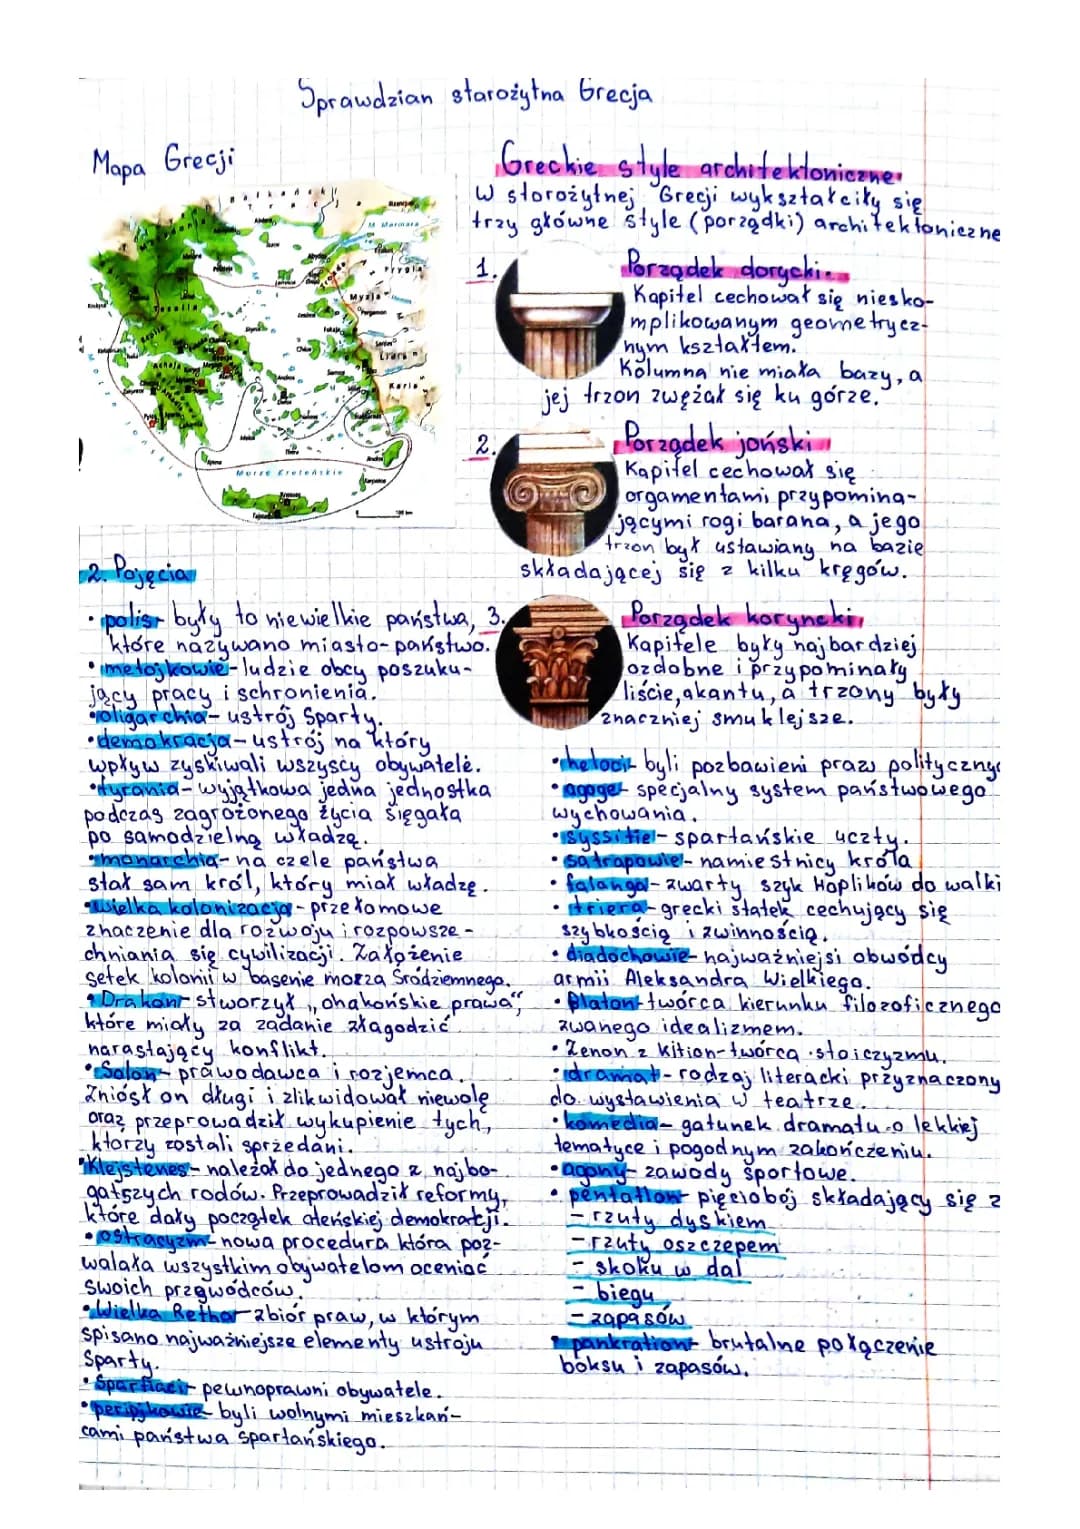 Sprawdzian starożytna Grecja
Mapa Grecji
M. Marmara
Frygia
Myzja
Karia
Morze Kreteńskie
Greckie style architektoniczne
W starożytnej Grecji wykształciły się
trzy główne style (porządki) architektoniczne
1. Porządek dorycki
Kapitel cechował się niesko-
mplikowanym geometrycz-
nym kształtem.
Kolumna nie miała bazy, a
jej trzon zwężał się ku górze.
2. Porządek joński
Kapitel cechował się
orgamentami przypomina-
jącymi rogi barana, a jego
trzon był ustawiany na bazie
składającej się z kilku kręgów.
3. Porządek koryncki
Kapitele były najbardziej
ozdobne i przypominały
liście, akantu, a trzony były
znaczniej smuklejsze.
2. Pojęcia
• polis- były to niewielkie państwa,
które nazywano miasto-państwo.
• metojkowie-ludzie obcy poszuku-
jący pracy i schronienia.
• oligarchia- ustrój Sparty.
• demokracja-ustrój na który
wpływ zyskiwali wszyscy obywatele.
• tyrania-wyjątkowa jedna jednostka
podczas zagrożonego życia sięgała
po samodzielną władzę.
• monarchia-na czele państwa
stał sam król, który miał władzę.
• wielka kolonizacja-przełomowe
znaczenie dla rozwoju i rozpowsze-
chniania się cywilizacji. Założenie
setek kolonii w basenie morza Śródziemnego.
• Drakon- stworzył „ohakońskie prawa",
które miały za zadanie złagodzić
narastający konflikt.
• Salon- prawodawca i rozjemca.
Zniósł on długi i zlikwidował niewolę
oraz przeprowadził wykupienie tych,
którzy zostali sprzedani.
• Klejstenes- należał do jednego z najbo-
gatszych rodów. Przeprowadził reformy,
które dały początek ateńskiej demokracji.
• ostracyzm- nowa procedura która poz-
walała wszystkim obywatelom oceniać
swoich przywódców.
• Wielka Rethar- zbiór praw, w którym
spisano najważniejsze elementy ustroju
Sparty.
• Spartiaci- pewnoprawni obywatele.
• periojkowie- byli wolnymi mieszkań-
cami państwa spartańskiego.
• heloci- byli pozbawieni praw polityczny
• agoge- specjalny system państwowego
wychowania.
• syssitie- spartańskie uczty.
• satrapowie- namiestnicy króla
• falanga- zwarty szyk Hoplików do walki
• triera- grecki statek cechujący się
szybkością i zwinnością.
• diadochowie- najważniejsi obwódcy
armii Aleksandra Wielkiego.
• Platon- twórca kierunku filozoficznego
zwanego idealizmem.
• Zenon z Kition-twórca stoiczyzmu.
• dramat- rodzaj literacki przyznaczony
do wystawienia w teatrze.
• komedia- gatunek dramatu o lekkiej
tematyce i pogodnym zakończeniu.
• agony- zawody sportowe.
• pentatlon- pięciobój składający się z
- rzuty dyskiem
- rzuty oszczepem
- skoku w dal
- biegu
- zapasów
• pankration- brutalne połączenie
boksu i zapasów.